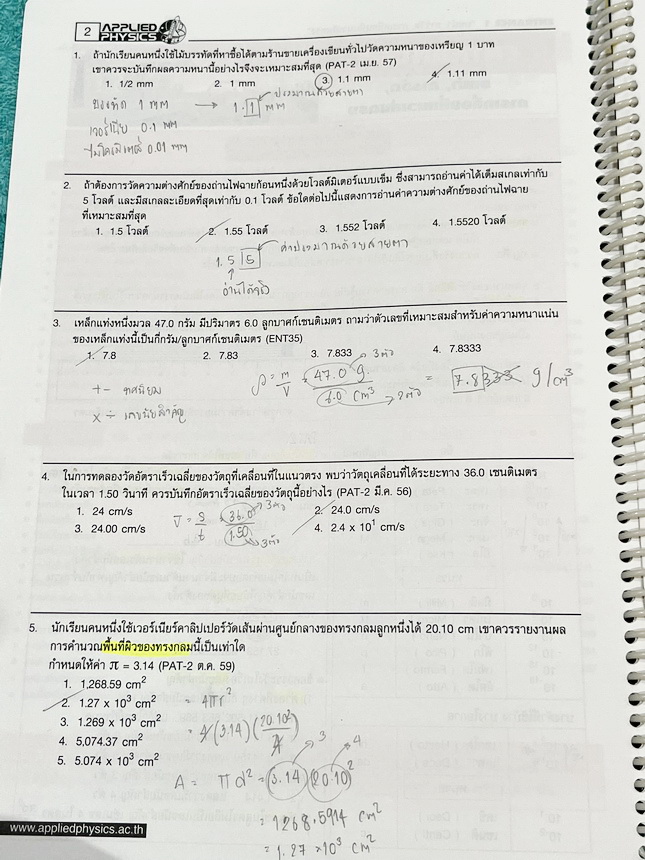 2 APPLIED PHYSICS
1. ถ้านักเรียนคนหนึ่งใช้ไม้บรรทัดที่หาซื้อได้ตามร้านขายเครื่องเขียนทั่วไปวัดความหนาของเหรียญ 1 บาท
เขาควรจะบันทึกผลความหนานี้อย่างไรจึงจะเหมาะสมที่สุด (PAT-2 เม.ย. 57)
1. 1/2 mm 2. 1 mm 3. 1.1 mm 4. 1.11 mm
ไม้บรรทัด 1 mm → 1.1 mm ประมาณด้วยสายตา
เวอร์เนีย 0.1 mm
ไมโครมิเตอร์ 0.01 mm
2. ถ้าต้องการวัดความต่างศักย์ของถ่านไฟฉายก้อนหนึ่งด้วยโวลต์มิเตอร์แบบเข็ม ซึ่งสามารถอ่านค่าได้เต็มสเกลเท่ากับ
5 โวลต์ และมีสเกลละเอียดที่สุดเท่ากับ 0.1 โวลต์ ข้อใดต่อไปนี้แสดงการอ่านค่าความต่างศักย์ของถ่านไฟฉาย
ที่เหมาะสมที่สุด
1. 1.5 โวลต์ 2. 1.55 โวลต์ 3. 1.552 โวลต์ 4. 1.5520 โวลต์
1.55 ค่าประมาณด้วยสายตา
อ่านได้จริง
3. เหล็กแท่งหนึ่งมวล 47.0 กรัม มีปริมาตร 6.0 ลูกบาศก์เซนติเมตร ถามว่าตัวเลขที่เหมาะสมสำหรับค่าความหนาแน่น
ของเหล็กแท่งนี้เป็นกี่กรัม/ลูกบาศก์เซนติเมตร (ENT35)
1. 7.8 2. 7.83 3. 7.833 4. 7.8333
ρ = m/V = 47.0 g / 6.0 cm³ = 7.8333 g/cm³
3 ตัว
2 ตัว
+ − ทศนิยม
× ÷ เลขนัยสำคัญ
4. ในการทดลองวัดอัตราเร็วเฉลี่ยของวัตถุที่เคลื่อนที่ในแนวตรง พบว่าวัตถุเคลื่อนที่ได้ระยะทาง 36.0 เซนติเมตร
ในเวลา 1.50 วินาที ควรบันทึกอัตราเร็วเฉลี่ยของวัตถุนี้อย่างไร (PAT-2 มี.ค. 56)
1. 24 cm/s 2. 24.0 cm/s
3. 24.00 cm/s 4. 2.4 x 10¹ cm/s
v̄ = s/t = 36.0/1.50
3 ตัว
3 ตัว
5. นักเรียนคนหนึ่งใช้เวอร์เนียร์คาลิปเปอร์วัดเส้นผ่านศูนย์กลางของทรงกลมลูกหนึ่งได้ 20.10 cm เขาควรรายงานผล
การคำนวณพื้นที่ผิวของทรงกลมนี้เป็นเท่าใด
กำหนดให้ค่า π = 3.14 (PAT-2 ต.ค. 59)
1. 1,268.59 cm²
2. 1.27 x 10³ cm²
3. 1.269 x 10³ cm²
4. 5,074.37 cm²
5. 5.074 x 10³ cm²
= 4πr²
= 4(3.14)(20.10²/4)
3 4
A = πd² = (3.14)(20.10)²
= 1268.5914 cm²
= 1.27 ×10³ cm²
www.appliedphysics.ac.th